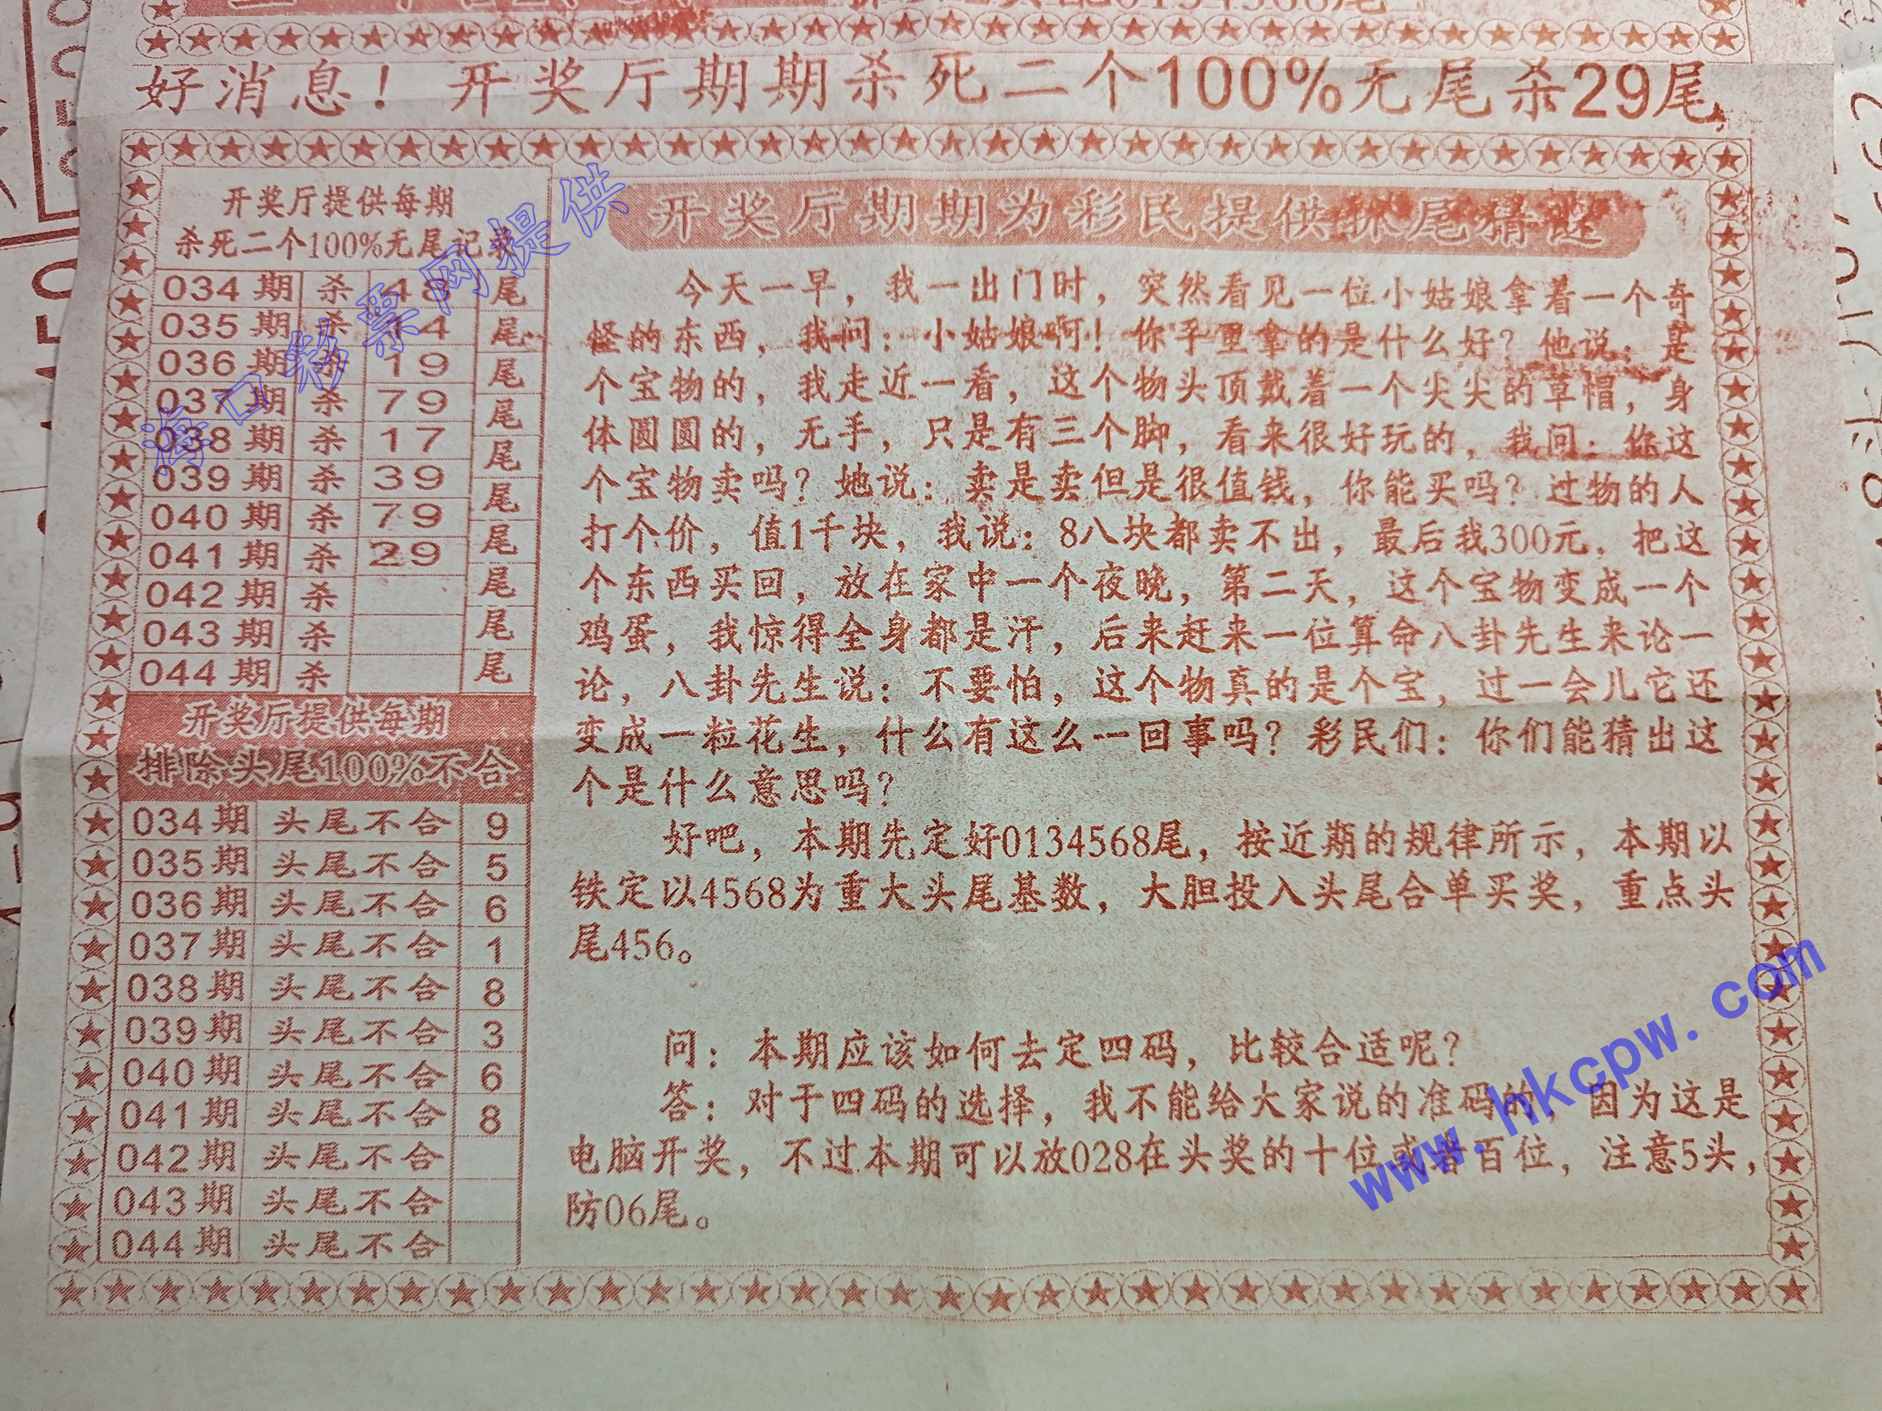 0134568尾
好消息！开奖厅期期杀死二个100%无尾杀29尾
开奖厅提供每期
杀死二个100%无尾记录
034期 杀 48 尾
035期 杀 4 尾
036期 杀 19 尾
037期 杀 79 尾
038期 杀 17 尾
039期 杀 39 尾
040期 杀 79 尾
041期 杀 29 尾
042期 杀 尾
043期 杀 尾
044期 杀 尾
开奖厅提供每期
排除头尾100%不合
034期 头尾不合 9
035期 头尾不合 5
036期 头尾不合 6
037期 头尾不合 1
038期 头尾不合 8
039期 头尾不合 3
040期 头尾不合 6
041期 头尾不合 8
042期 头尾不合
043期 头尾不合
044期 头尾不合
开奖厅期期为彩民提供抓尾猜谜
今天一早，我一出门时，突然看见一位小姑娘拿着一个奇
怪的东西，我问：小姑娘啊！你手里拿的是什么好？他说：是
个宝物的，我走近一看，这个物头顶戴着一个尖尖的草帽，身
体圆圆的，无手，只是有三个脚，看来很好玩的，我问：你这
个宝物卖吗？她说：卖是卖但是很值钱，你能买吗？过物的人
打个价，值1千块，我说：8八块都卖不出，最后我300元．把这
个东西买回，放在家中一个夜晚，第二天，这个宝物变成一个
鸡蛋，我惊得全身都是汗，后来赶来一位算命八卦先生来论一
论，八卦先生说：不要怕，这个物真的是个宝，过一会儿它还
变成一粒花生，什么有这么一回事吗？彩民们：你们能猜出这
个是什么意思吗？
好吧，本期先定好0134568尾，按近期的规律所示，本期以
铁定以4568为重大头尾基数，大胆投入头尾合单买奖，重点头
尾456。
问：本期应该如何去定四码，比较合适呢？
答：对于四码的选择，我不能给大家说的准码的 因为这是
电脑开奖，不过本期可以放028在头奖的十位或者百位，注意5头，
防06尾。
海口彩票网提供
www.hkcpw.com